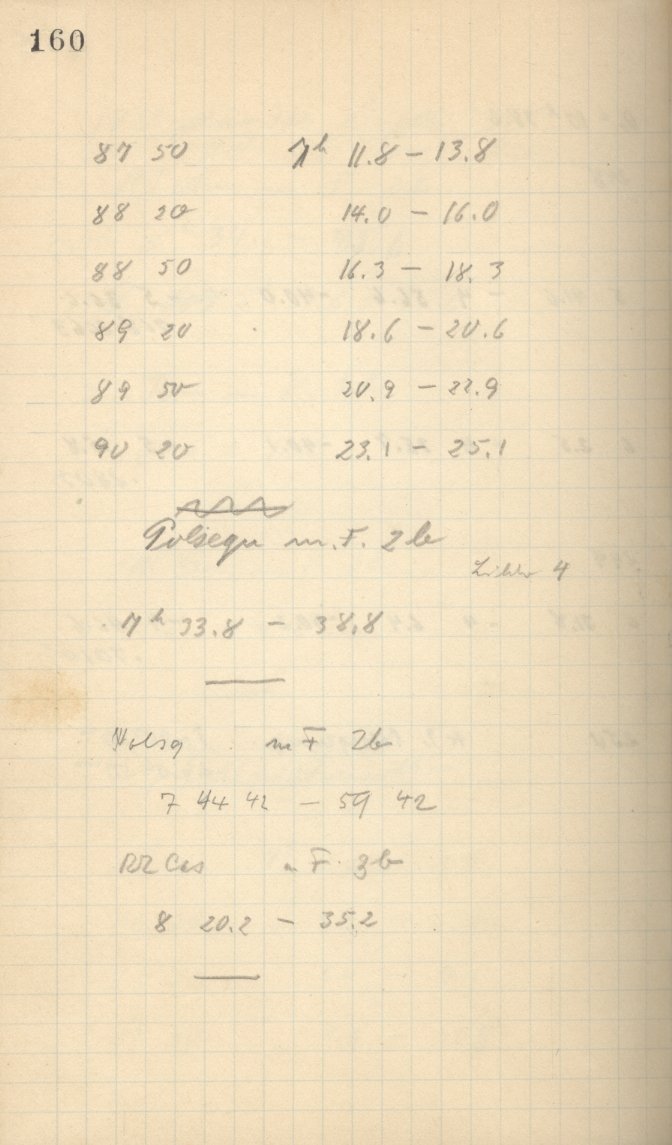 160
87 50 7h 11.8 – 13.8
88 20 14.0 – 16.0
88 50 16.3 – 18.3
89 20 18.6 – 20.6
89 50 20.9 – 22.9
90 20 23.1 – 25.1
Polsequ m. F. 2b
4
7h 33.8 – 38.8
Polsq m F 2b
7 44 42 – 59 42
RZ Cas m F. 3b
8 20.2 – 35.2